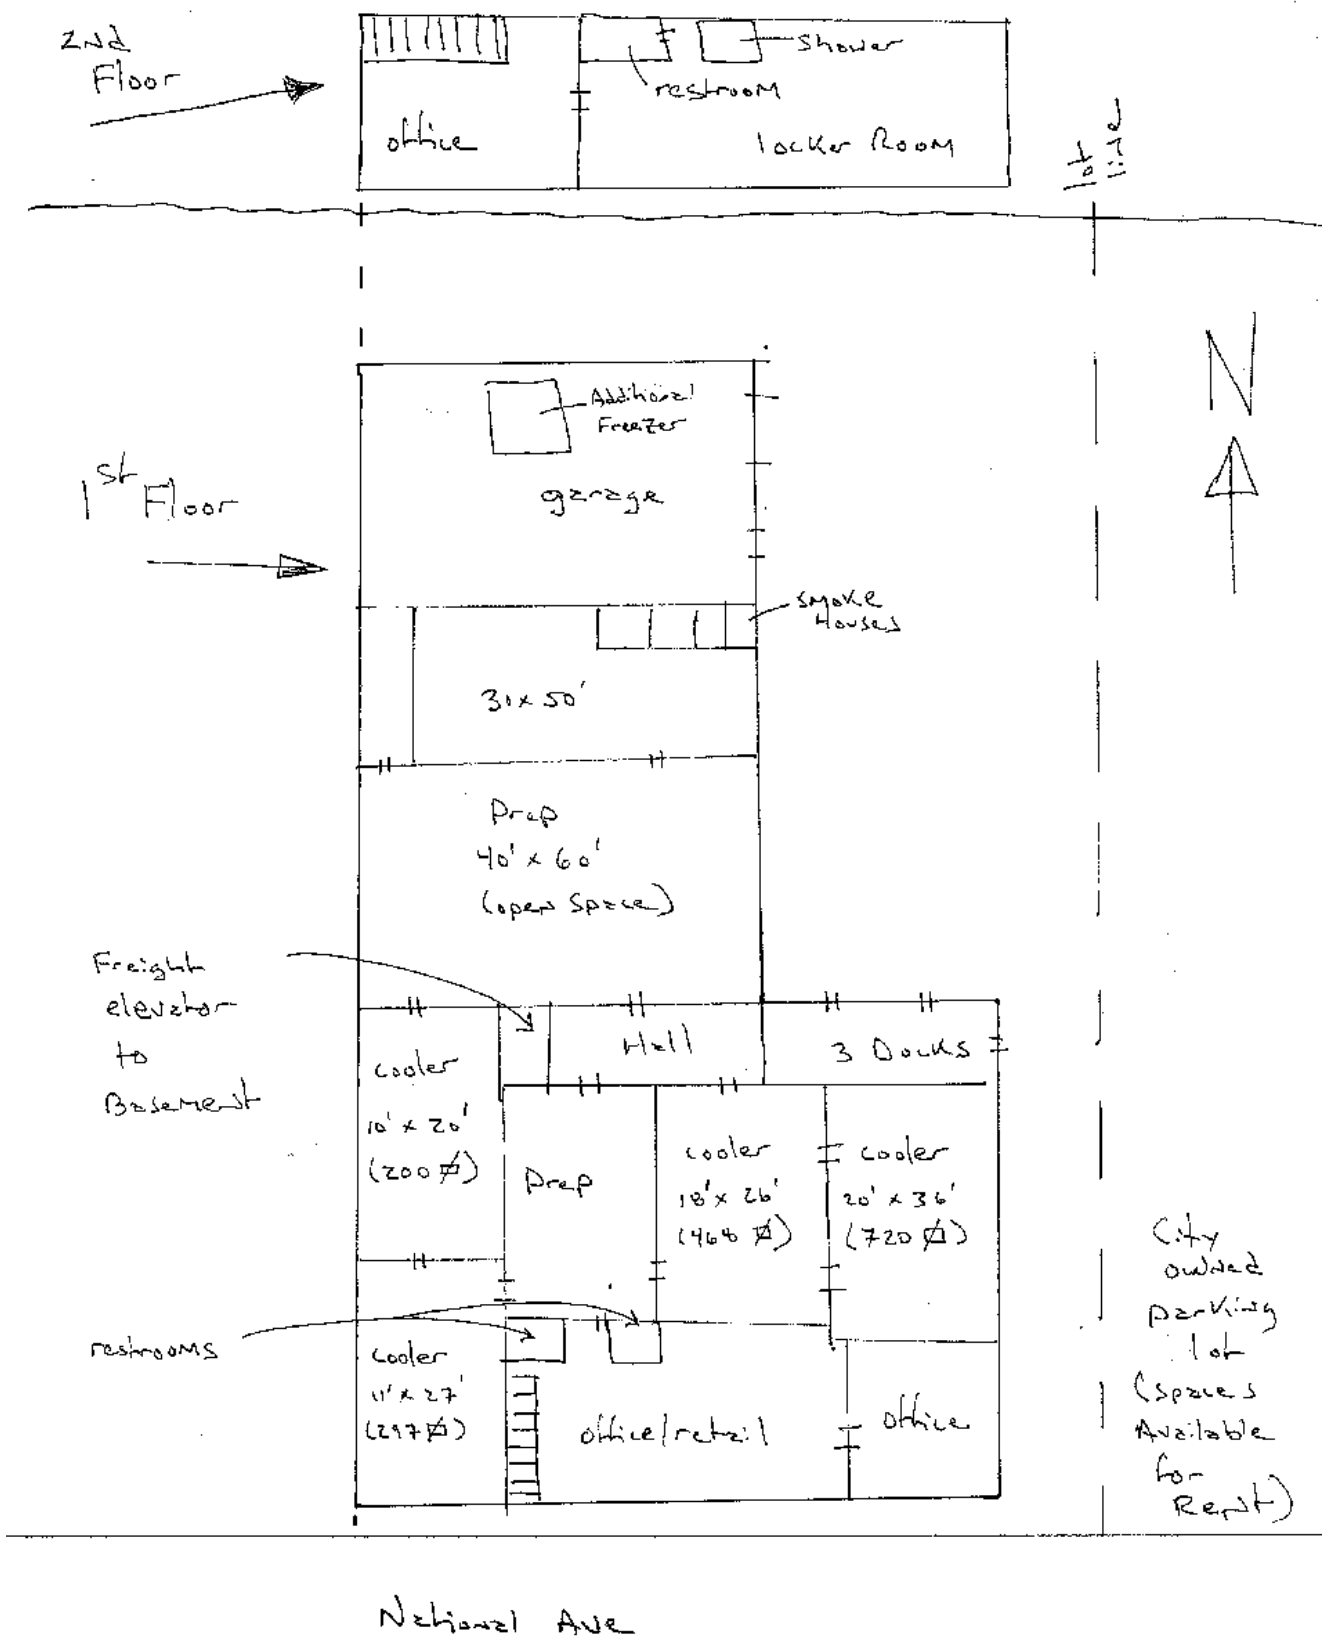 2nd
Floor
office
restroom
shower
locker Room
lot
line
N
1st Floor
Additional
Freezer
garage
smoke
Houses
30 x 50'
Prep
40' x 60'
(open space)
Freight
elevator
to
Basement
Hall
3 Docks
cooler
10' x 20'
(200 ⌀)
Prep
cooler
18' x 26'
(468 ⌀)
cooler
20' x 36'
(720 ⌀)
restrooms
cooler
11' x 27'
(297 ⌀)
office/retail
office
City
owned
parking
lot
(spaces
Available
for
Rent)
National Ave